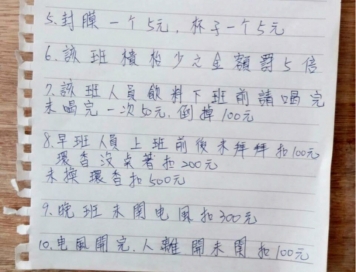 5.封膜一个5元,杯子一个5元
6.該班積柏少之金額罰5倍
7.該班人員飲料下班前請喝完
未喝完一次50元,倒掉100元
8.早班人員上班前後未拜拜扣100元
環香沒点著扣200元
未換環香扣500元
9.晚班未関电風扣300元
10.电風開完,人離開未関扣100元